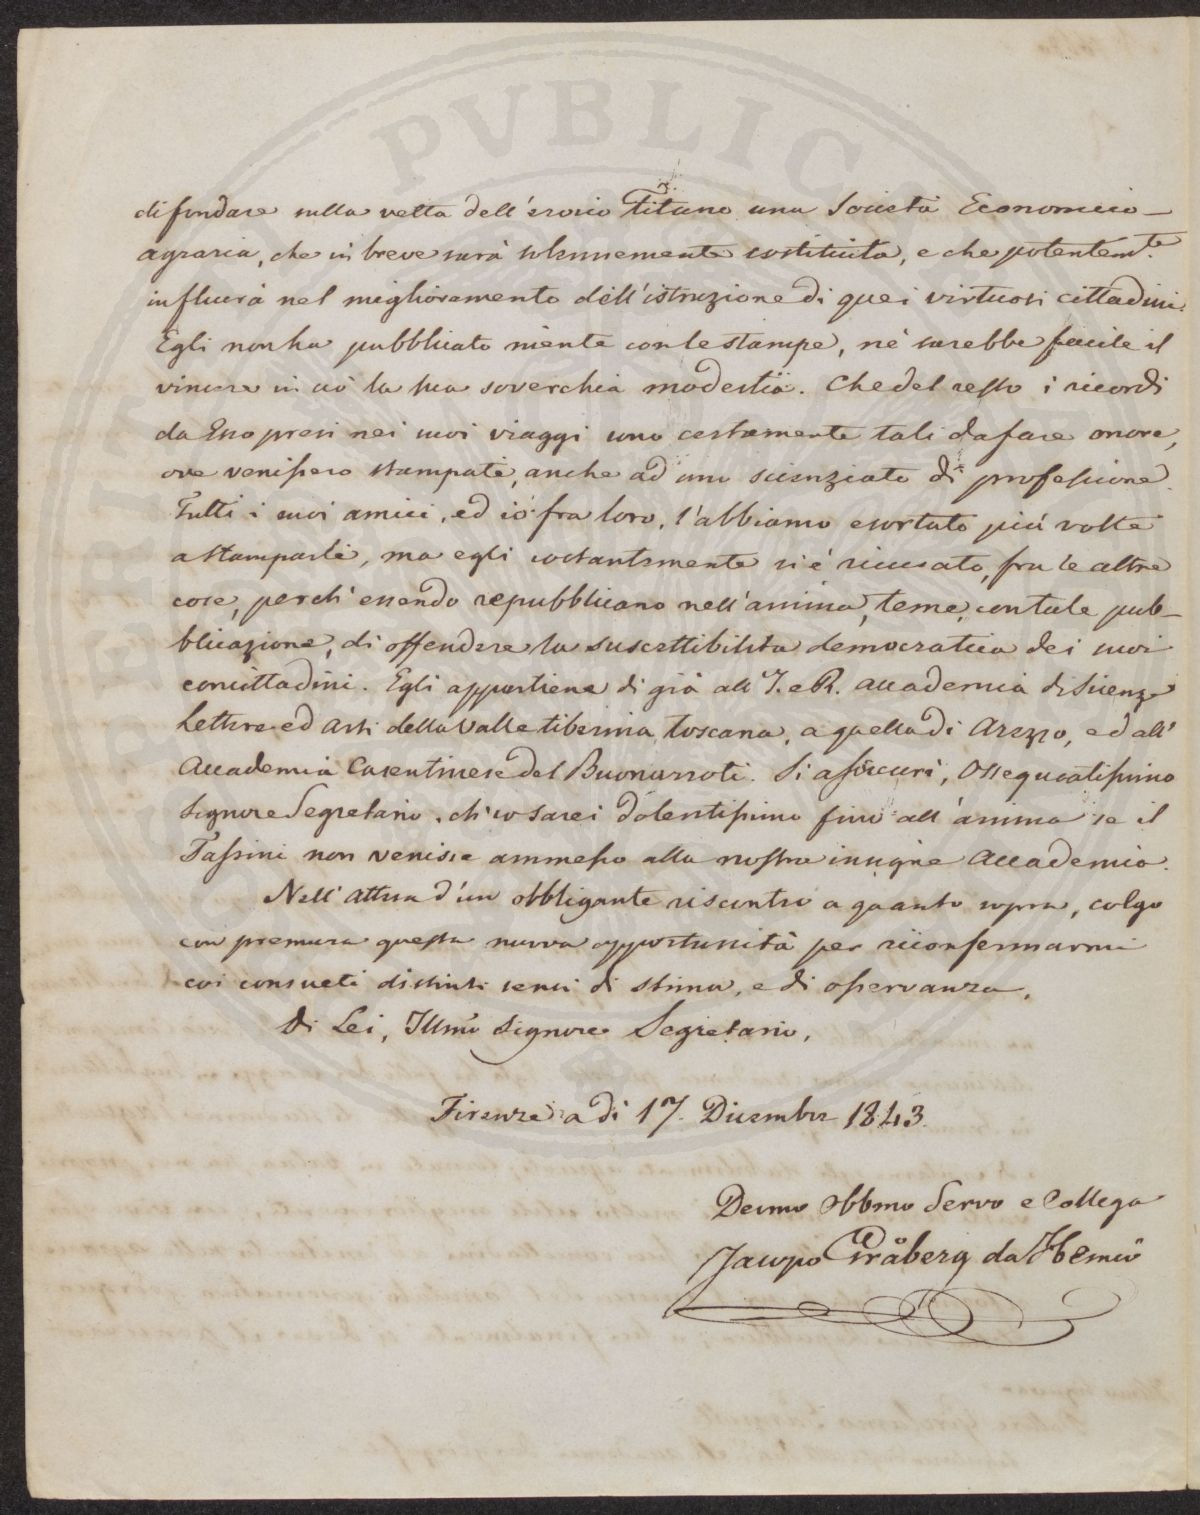 di fondare sulla vetta dell'eroico Titano una Società Economico-
agraria, che in breve sarà solennemente costituita, e che potentemte.
influirà nel miglioramento dell'istruzione di quei virtuosi cittadini.
Egli non ha pubblicato niente con le stampe, nè sarebbe facile il
vincere in ciò la sua soverchia modestia. Che del resto i ricordi
da Esso presi nei suoi viaggi sono certamente tali da fare onore,
ove venissero stampati, anche ad uno scienziato di professione.
Tutti i suoi amici, ed io fra loro, l'abbiamo esortato più volte
a stamparli, ma egli costantemente si è ricusato, fra le altre
cose, perch' essendo repubblicano nell'anima, teme, con tale pub-
blicazione, di offendere la suscettibilità democratica dei suoi
concittadini. Egli appartiene di già all'I. e R. Accademia di Scienze
Lettere ed Arti della Valle tiberina toscana, a quella di Arezzo, ed all'
Accademia Casentinese del Buonarroti. Si assicuri, Ossequiatissimo
Signore Segretario, ch'io sarei dolentissimo fino all'anima se il
Tassini non venisse ammesso alla nostra insigne Accademia.
Nell'attesa d'un obbligante riscontro a quanto sopra, colgo
con premura questa nuova opportunità per riconfermarmi
coi consueti distinti sensi di stima, e di osservanza,
Di Lei, Illmo Signore Segretario,
Firenze a dì 17. Dicembre 1843.
Devmo Obbmo Servo e Collega
Jacopo Gråberg da Hemsö
PVBLICA